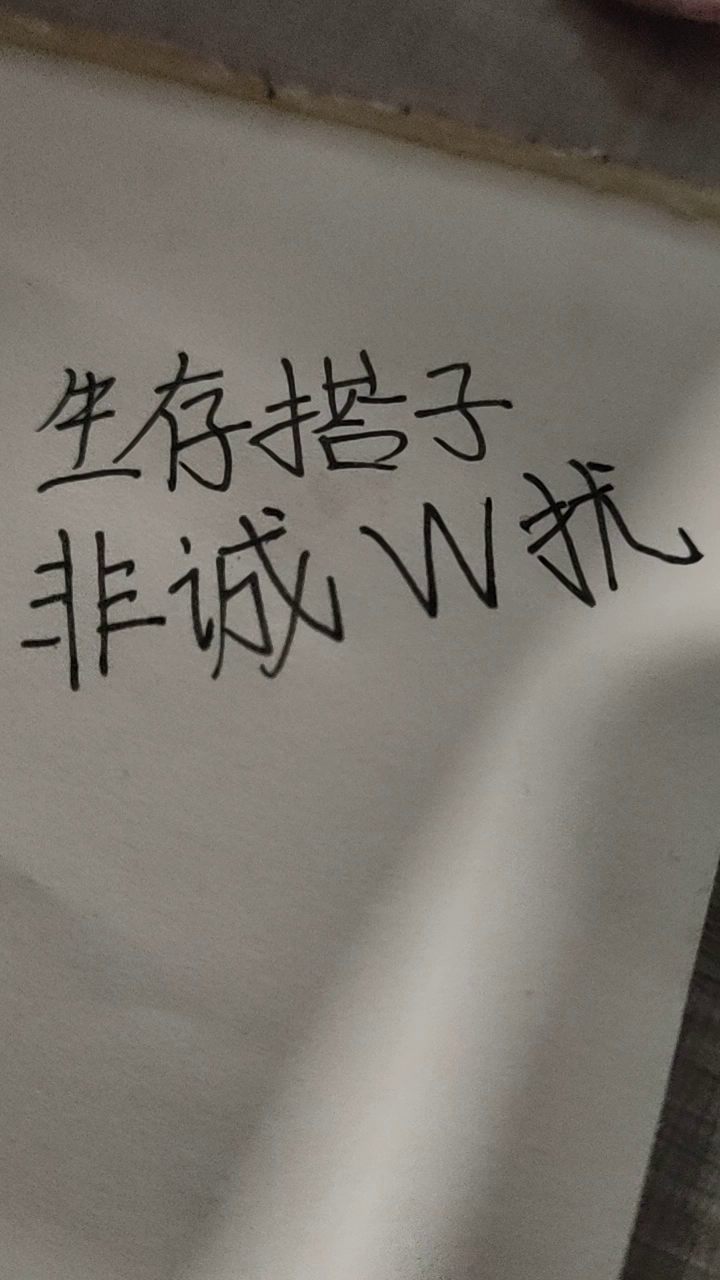 生存搭子
非诚W扰